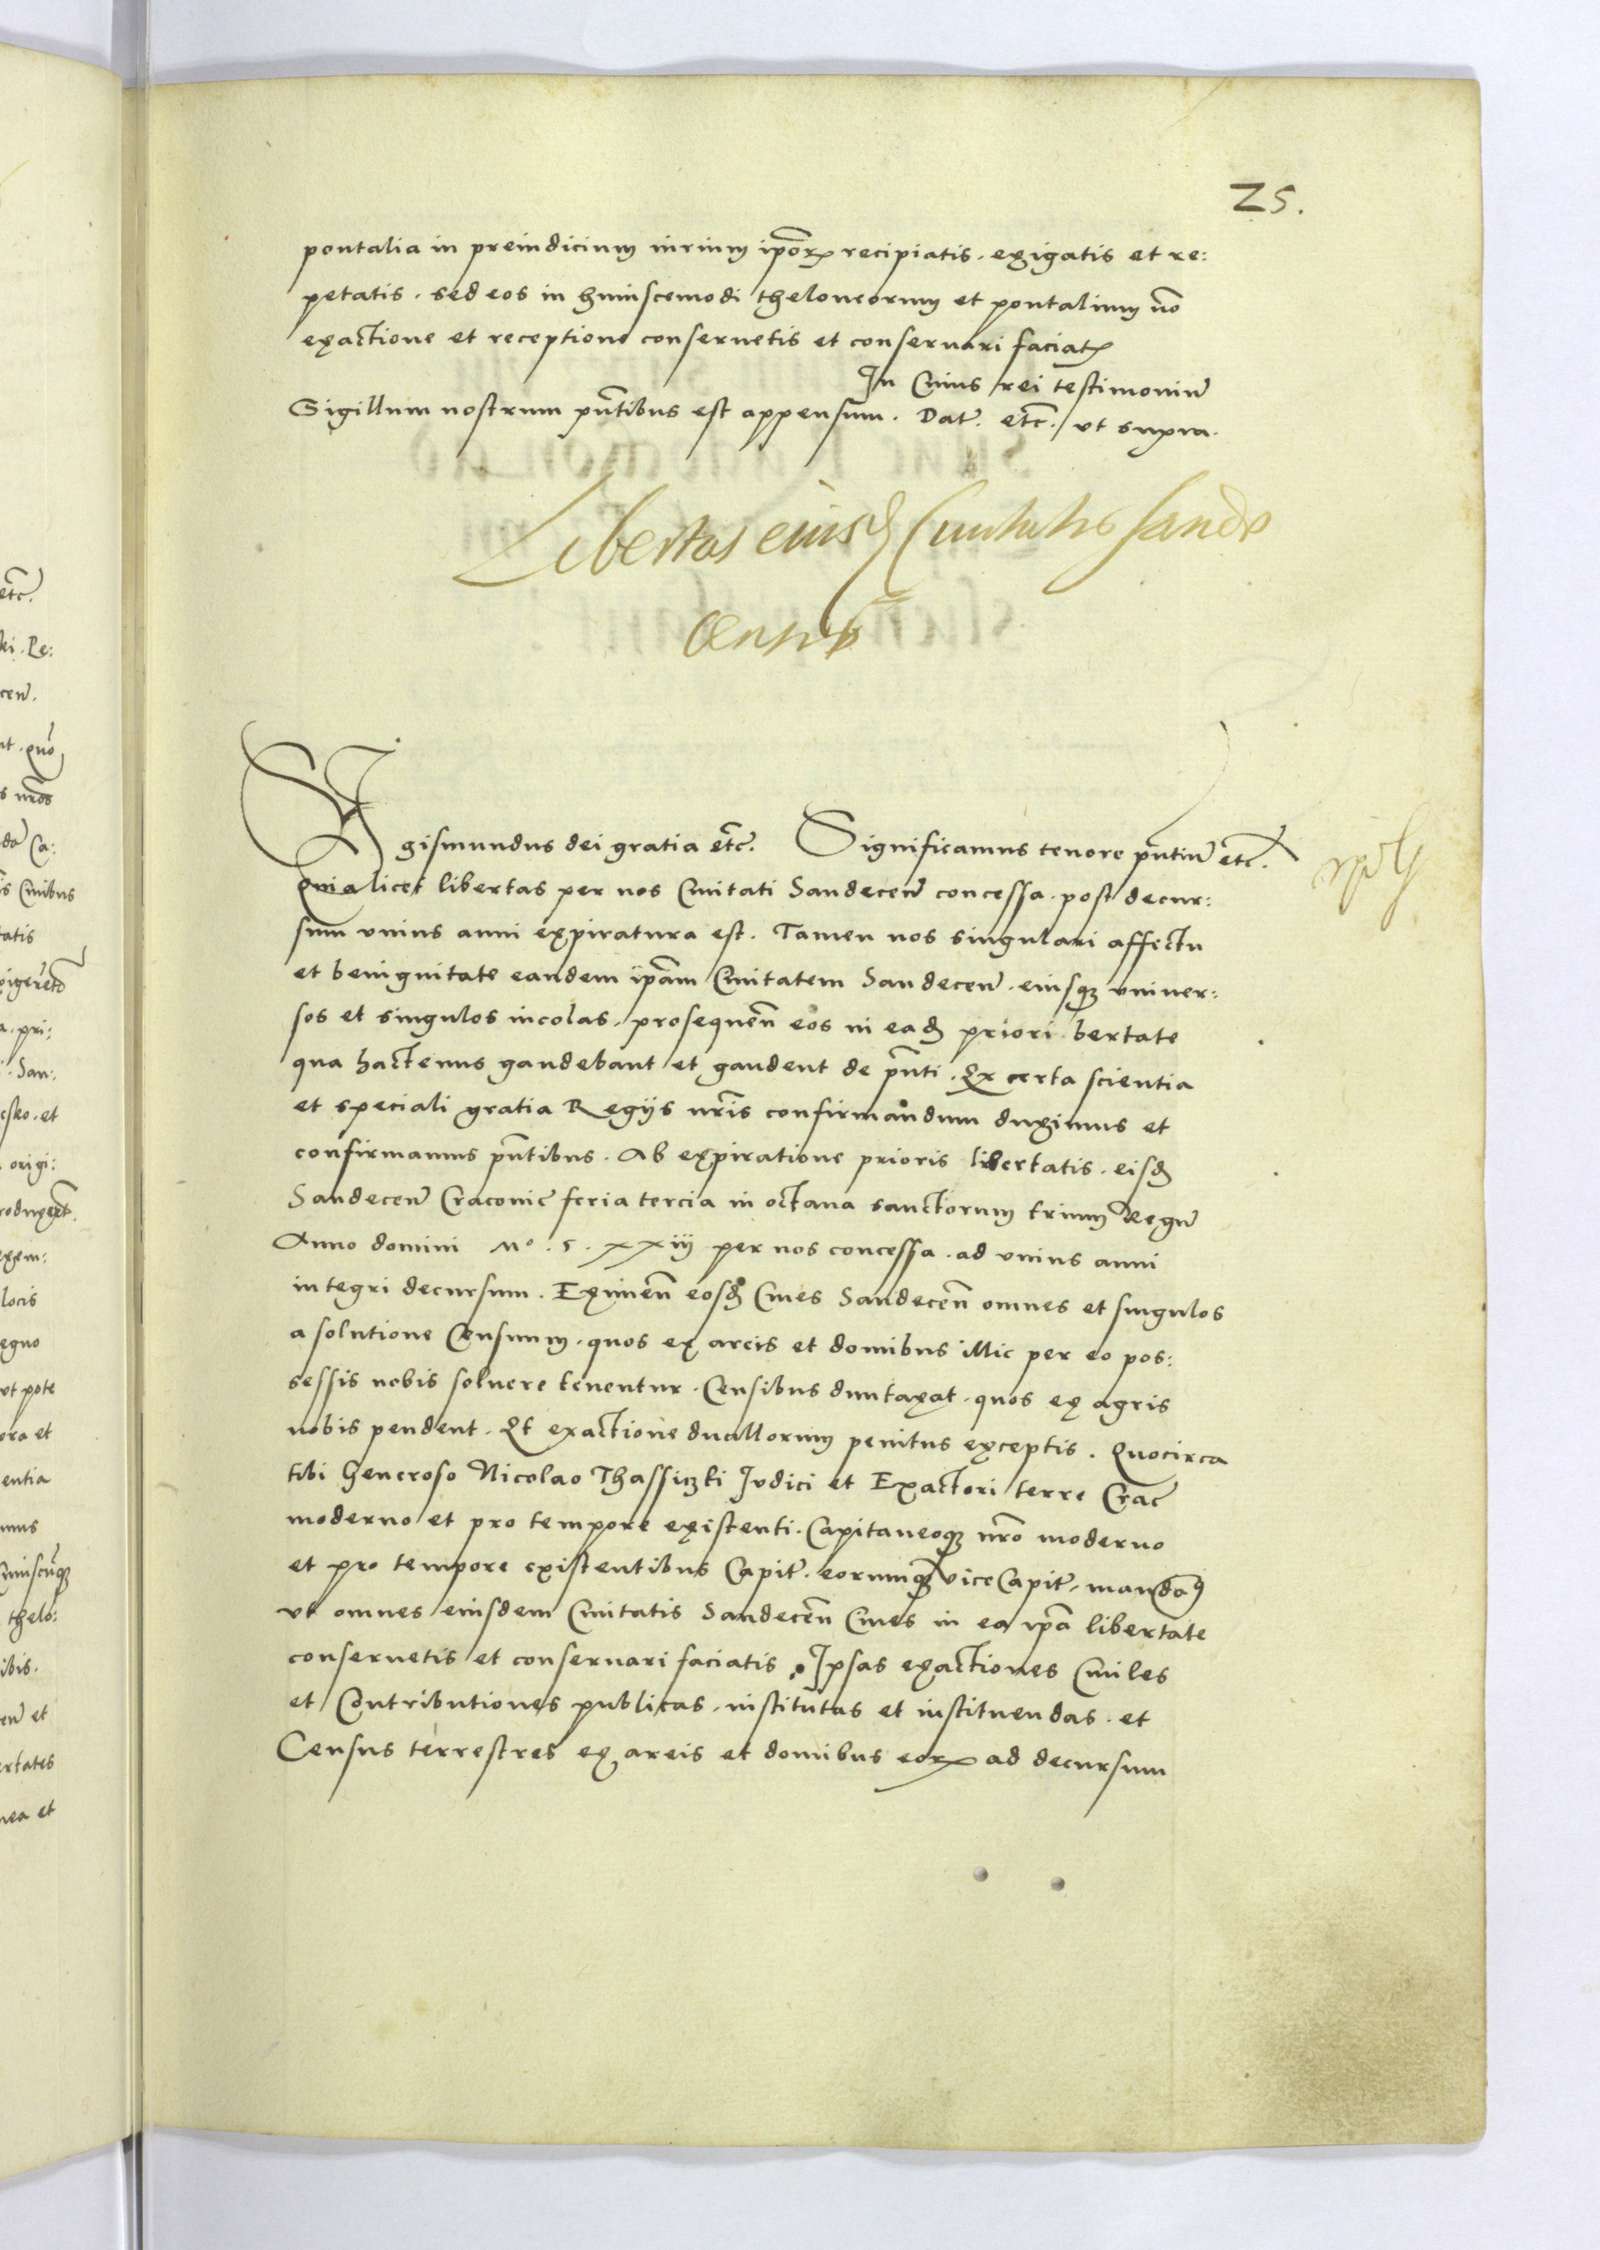 25.
pontalia in preiudicium iurium ipor̃ recipiatis. exigatis et re:
petatis. sed eos in huiuscemodi theloneorum et pontalium nõ
exactione et receptione conseruetis et conseruari faciatꝭ
In Cuius rei testimoniũ
Sigillum nostrum pñtibus est appensum. Datꝭ. etc̃. vt supra.
Libertas eiusd̃ Ciuitatis Sand
ecensis
Sigismundus dei gratia etc̃. Significamus tenore pñtiũ etc̃.
quia licet libertas per nos Ciuitati Sandeceñ concessa. post decur:
sum vnius anni expiratura est. Tamen nos singulari affectu
et benignitate eandem ipãm Ciuitatem Sandeceñ. eiusqꝫ vniuer:
sos et singulos incolas. prosequeñ eos in ead̃ priori bertate
qua hactenus gaudebant et gaudent de pñti. Ex certa scientia
et speciali gratia Regijs nr̃is confirmandum duximus et
confirmamus pñtibus. Ab expiratione prioris libertatis. eisd̃
Sandeceñ Cracouie feria tercia in octaua sanctorum trium Regũ
Anno domini Mº. 5. xxiij per nos concessa. ad vnius anni
integri decursum. Eximeñ eosd̃ Ciues Sandeceñ omnes et singulos
a solutione Censuum. quos ex areis et domibus illic per eo pos:
sessis nobis soluere tenentur. Censibus duntaxat. quos ex agris
nobis pendent. Et exactione duallorum penitus exceptis. Quocirca
tibi Generoso Nicolao Thassiczki Iudici et Exactori terre Crac̃
moderno et pro tempore existenti. Capitaneoqꝫ nr̃o moderno
et pro tempore existentibus Capitꝭ. eorumqꝫ viceCapitꝭ. mandamꝰ
vt omnes eiusdem Ciuitatis Sandeceñ Ciues in ea ip̃a libertate
conseruetis et conseruari faciatis. Ipsas exactiones Ciuiles
et Contributiones publicas. institutas et instituendas. et
Census terrestres ex areis et domibus eorꝫ ad decursum